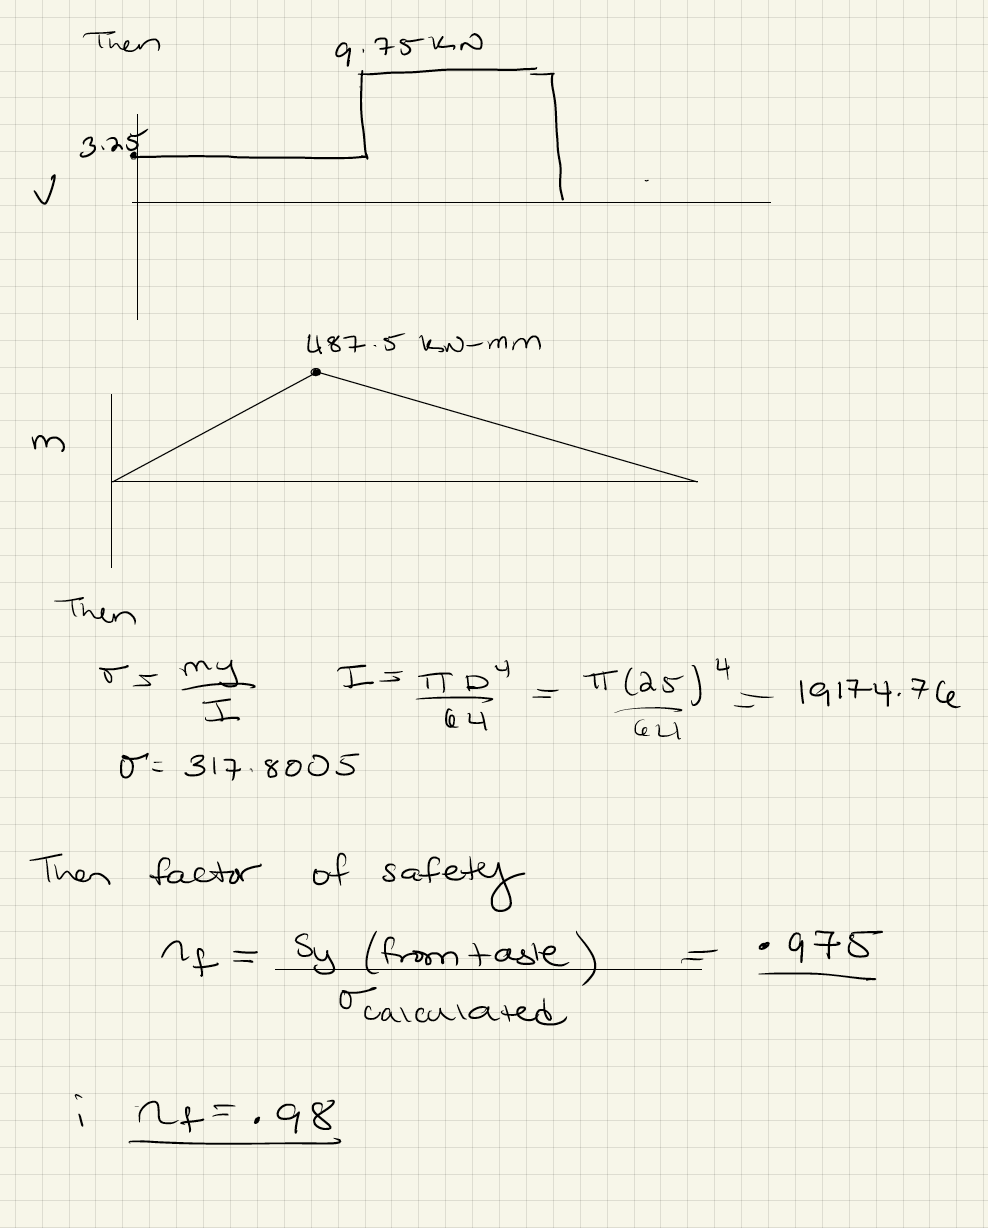 Then
9.75 kN
3.25
V
487.5 kN-mm
m
Then
σ = my/I    I = πD⁴/64 = π(25)⁴/64 = 19174.76
σ = 317.8005
Then factor of safety
nf = Sy (from table) / σcalculated = .975
i nf = .98